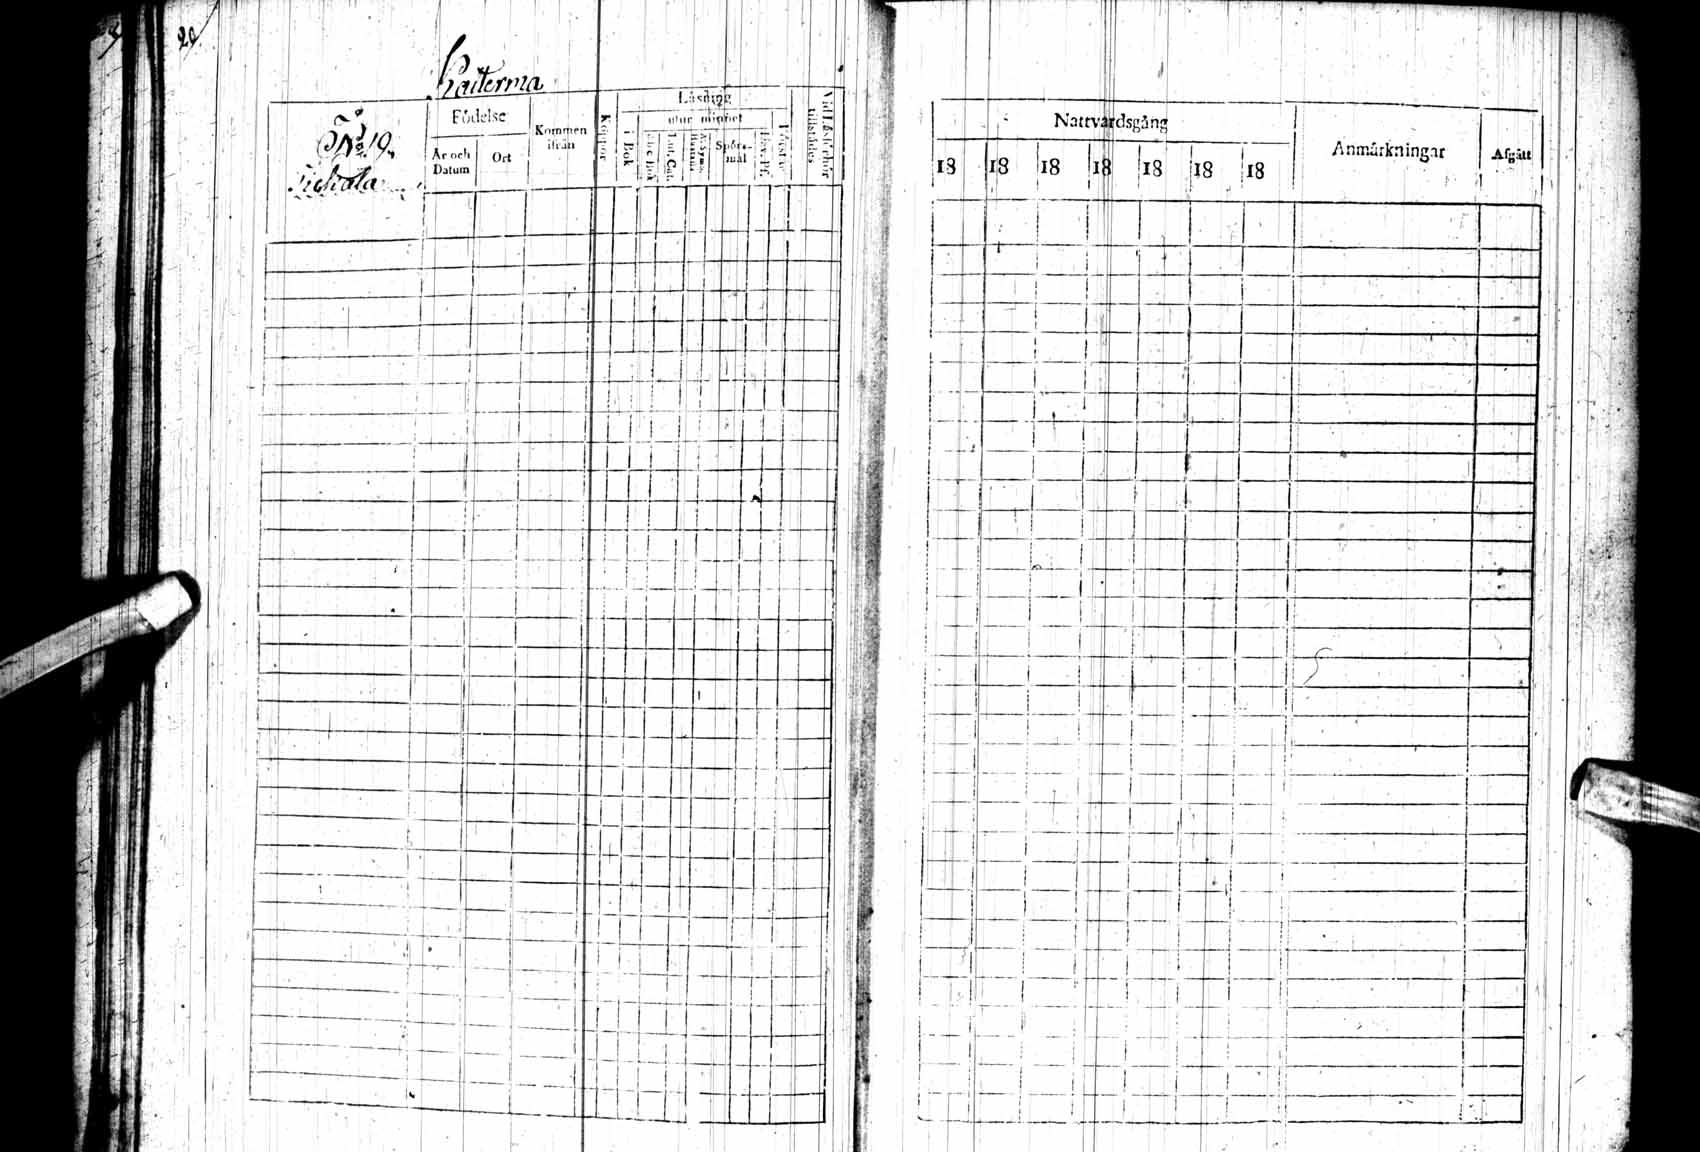 20
Kaiterma
Nº 19.
Födelse
År och
Datum
Ort
Kommen
ifrån
Koppor
Läsning
utur minnet
i Bok
A.b.c. Bok
Lut. Cat.
Spörs-
mål
Dav. Ps.
Vid Läsförhör
tillstädes
Nattvardsgång
18 18 18 18 18 18 18
Anmärkningar
Afgått